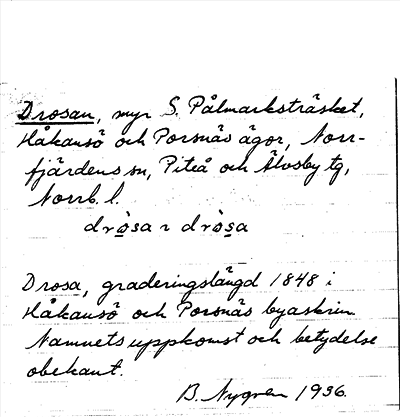 Drosan, myr S. Pålmarksträsket,
Håkansö och Porsnäs ägor, Norr-
fjärdens sn, Piteå och Älvsby tg,
Norrb. l.
dròsa ~ dròsa
Drosa, graderingslängd 1848 i
Håkansö och Porsnäs byaskrin
Namnets uppkomst och betydelse
obekant.
B. Nygren 1936.